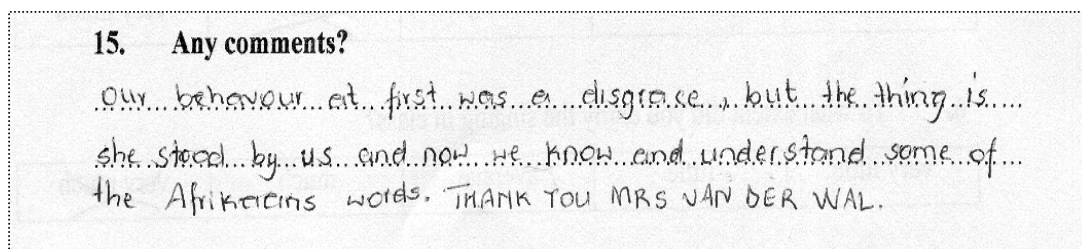 15. Any comments?
our behavour at first was a disgrase, but the thing is
she stood by us and now we know and understand some of
the Afrikaans words. THANK YOU MRS VAN DER WAL.